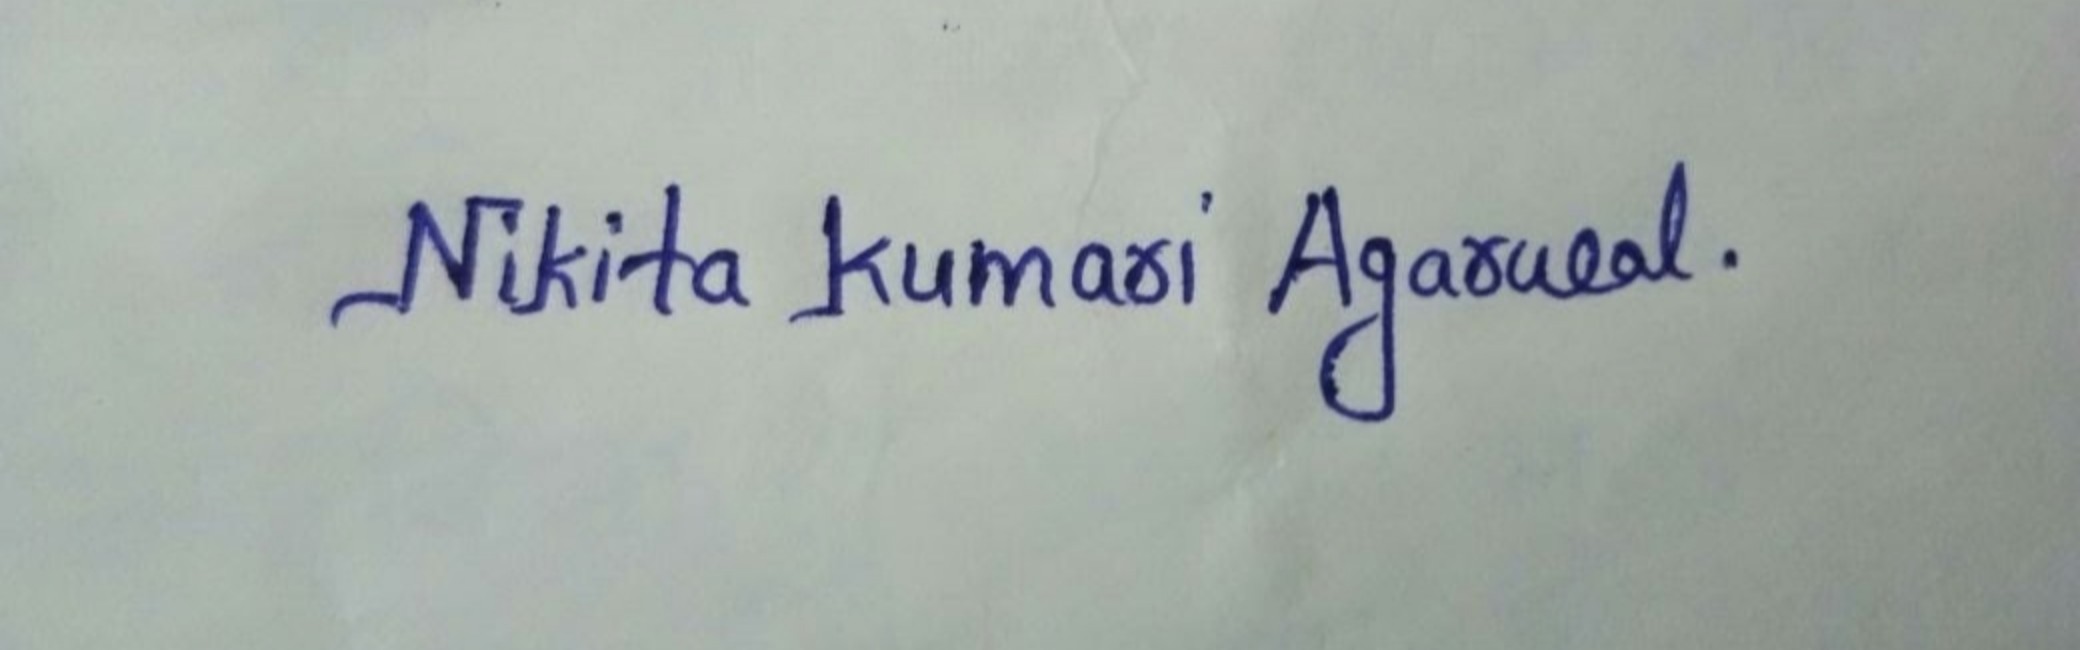 Nikita Kumari Agarwal.